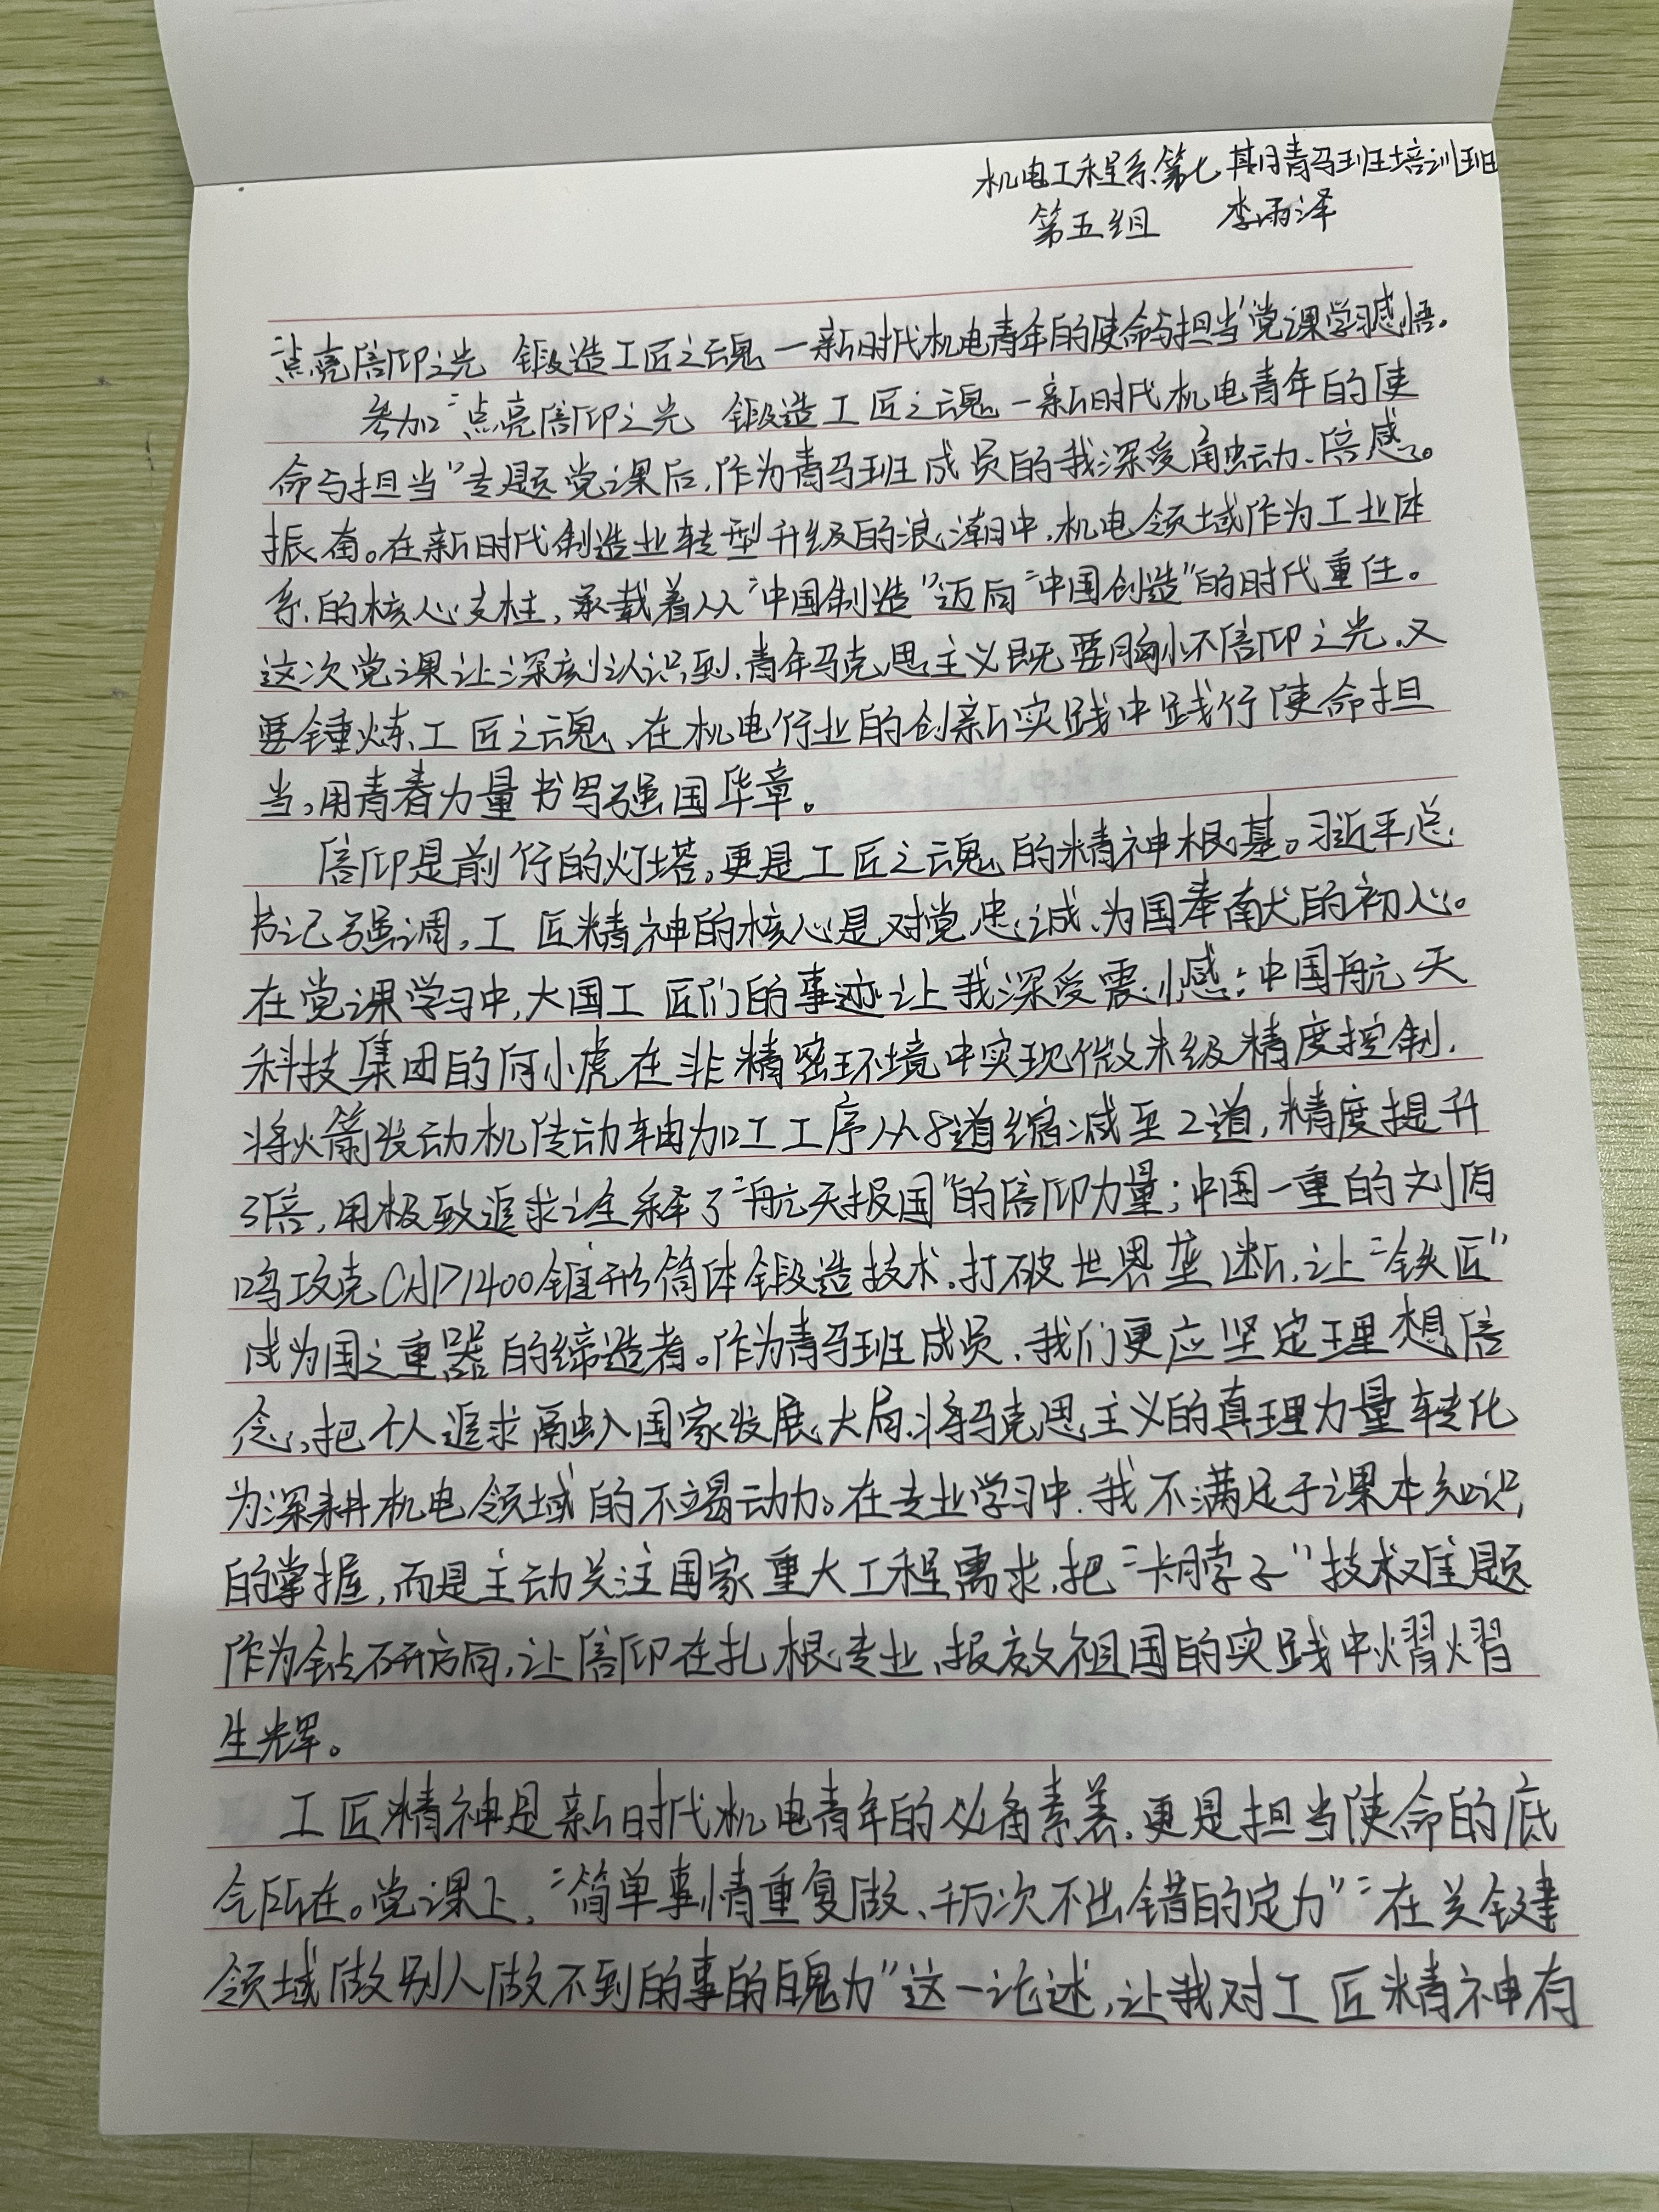 机电工程系第七期青马班培训班
第五组 李雨泽
点亮信仰之光 锻造工匠之魂—新时代机电青年的使命与担当"党课学习感悟。
参加"点亮信仰之光 锻造工匠之魂—新时代机电青年的使
命与担当"专题党课后,作为青马班成员的我深受触动、倍感。
振奋。在新时代制造业转型升级的浪潮中,机电领域作为工业体
系的核心支柱,承载着从"中国制造"迈向"中国创造"的时代重任。
这次党课让深刻认识到,青年马克思主义既要胸怀信仰之光,又
要锤炼工匠之魂,在机电行业的创新实践中践行使命担
当,用青春力量书写强国华章。
信仰是前行的灯塔,更是工匠之魂的精神根基。习近平总
书记强调,工匠精神的核心是对党忠诚、为国奉献的初心。
在党课学习中,大国工匠们的事迹让我深受震撼:中国航天
科技集团的何小虎在非精密环境中实现微米级精度控制,
将火箭发动机传动轴加工工序从8道缩减至2道,精度提升
3倍,用极致追求诠释了"航天报国"的信仰力量;中国一重的刘伯
鸣攻克CAP1400锥形筒体锻造技术,打破世界垄断,让"铁匠"
成为国之重器的缔造者。作为青马班成员,我们更应坚定理想信
念,把个人追求融入国家发展大局,将马克思主义的真理力量转化
为深耕机电领域的不竭动力。在专业学习中,我不满足于课本知识
的掌握,而是主动关注国家重大工程需求,把"卡脖子"技术难题
作为钻研方向,让信仰在扎根专业、报效祖国的实践中熠熠
生辉。
工匠精神是新时代机电青年的必备素养,更是担当使命的底
气所在。党课上,"简单事情重复做、千万次不出错的定力""在关键
领域做别人做不到的事的魄力"这一论述,让我对工匠精神有